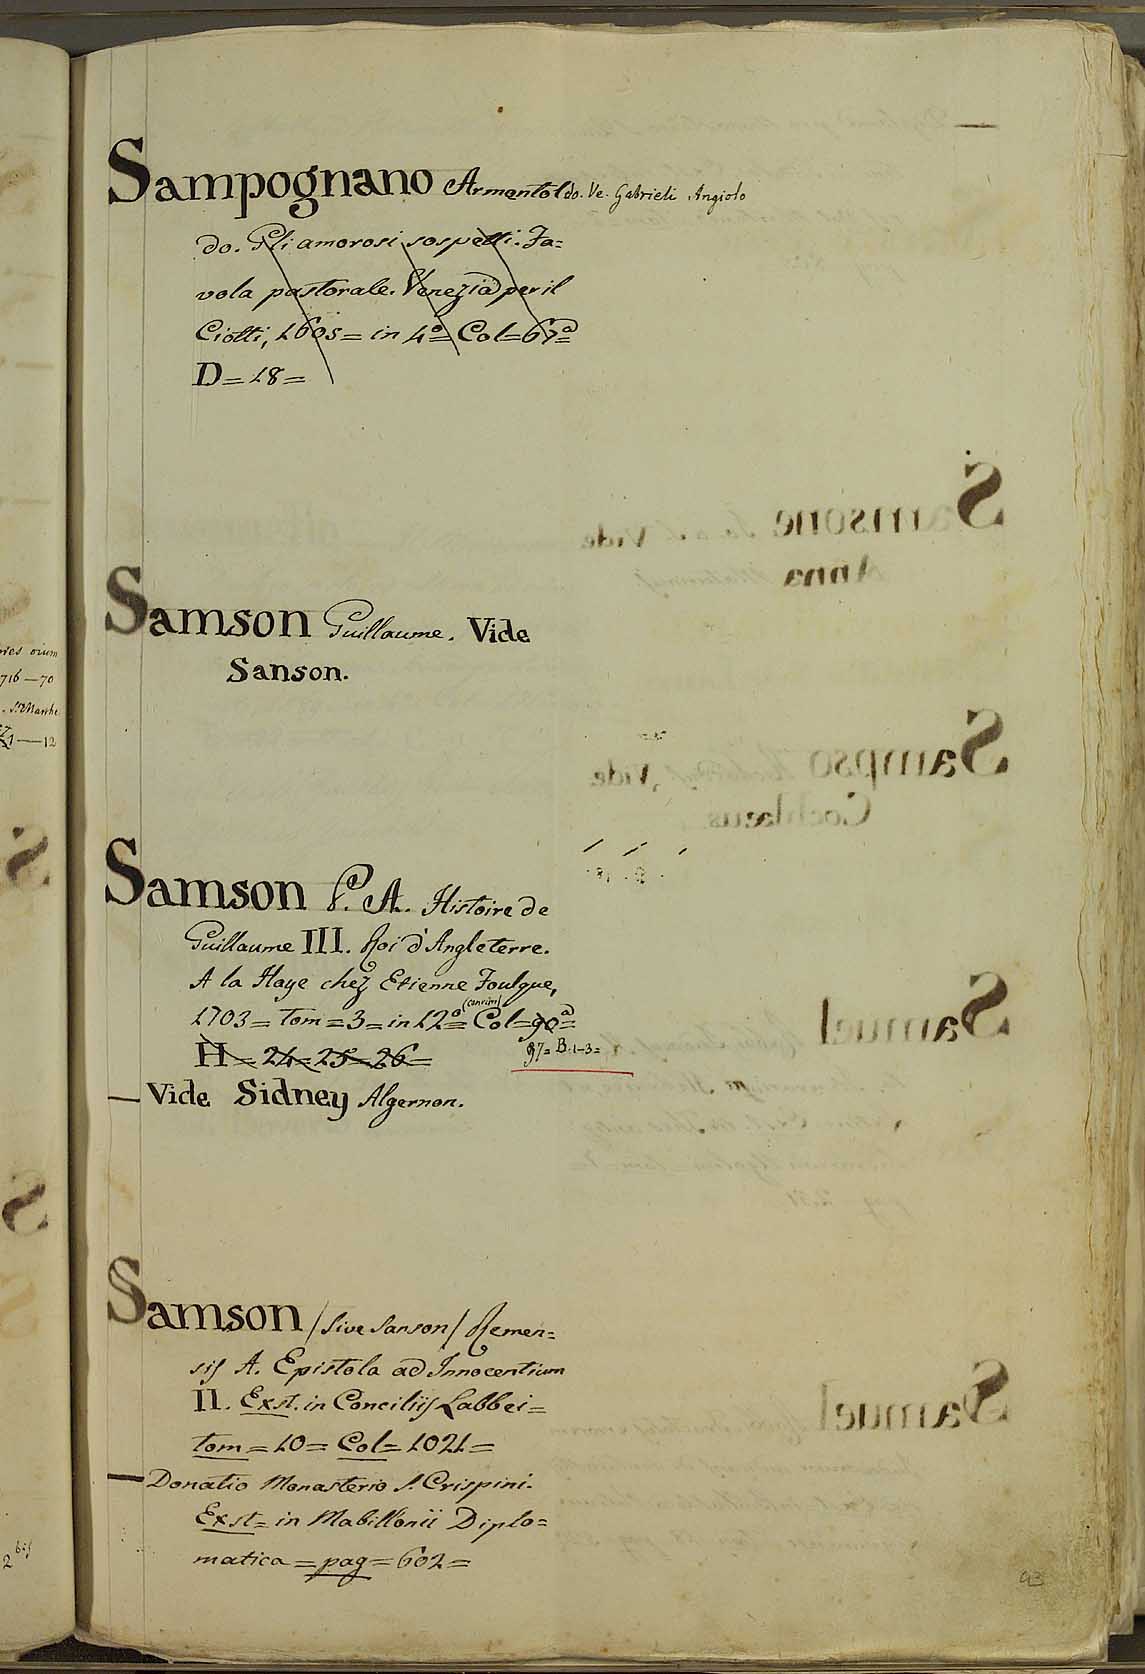 Sampognano Armentol do. Ve. Gabrieli Angiolo
do. Gli amorosi sospetti. Fa=
vola pastorale. Venezia per il
Ciotti, 1605 = in 4º = Col = 67ª =
D = 18 =
Samson Guillaume. Vide
Sanson.
Samson P. A. Histoire de
Guillaume III. Roi d'Angleterre.
A la Haye chez Etienne Foulque,
1703 = tom = 3 = in 12º = Col = 90ª =
H = 24 = 25 = 26 =
97 = B. 1-3 =
— Vide Sidney Algernon.
Samson / sive Sanson / Remen=
sis A. Epistola ad Innocentium
II. Exst. in Conciliis Labbei =
tom = 10 = Col = 1021 =
— Donatio Monasterio S. Crispini.
Exst = in Mabillonii Diplo=
matica = pag = 602 =
93
716 — 70
1 — 12
2 bis